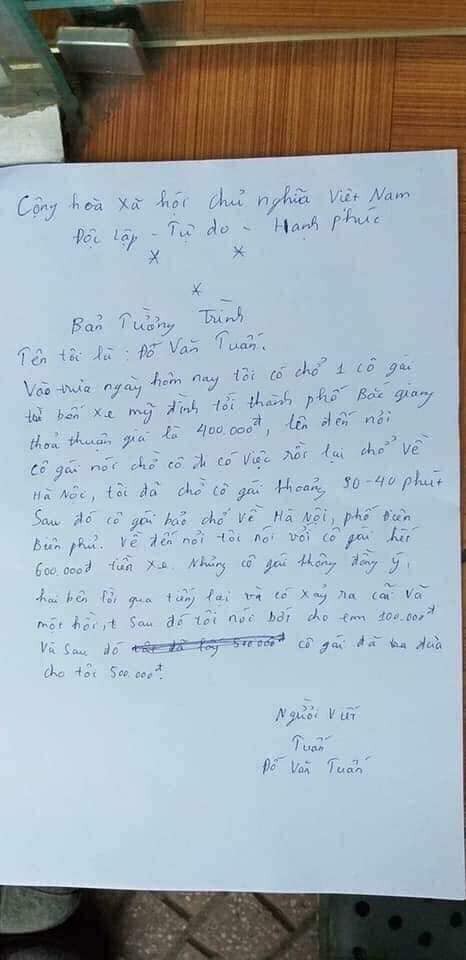 Cộng hoà xã hội chủ nghĩa Việt Nam
Độc lập - Tự do - Hạnh phúc
* *
*
Bản Tường Trình
Tên tôi là : Đỗ Văn Tuấn.
Vào trưa ngày hôm nay tôi có chở 1 cô gái
từ bến xe mỹ đình tới thành phố Bắc giang
thoả thuận giá là 400.000đ, lên đến nơi
cô gái nói chờ cô đi có việc rồi lại chở về
Hà Nộc, tôi đã chờ cô gái khoảng 30-40 phút
Sau đó cô gái bảo chở về Hà Nội, phố Điện
Biên phủ. Về đến nơi tôi nói với cô gái hết
600.000đ tiền xe. Nhưng cô gái không đồng ý,
hai bên lời qua tiếng lại và có xảy ra cãi vã
một hồi, Sau đó tôi nói bớt cho em 100.000đ
Và sau đó cô gái đã đưa
cho tôi 500.000đ.
Người Viết
Tuấn
Đỗ Văn Tuấn